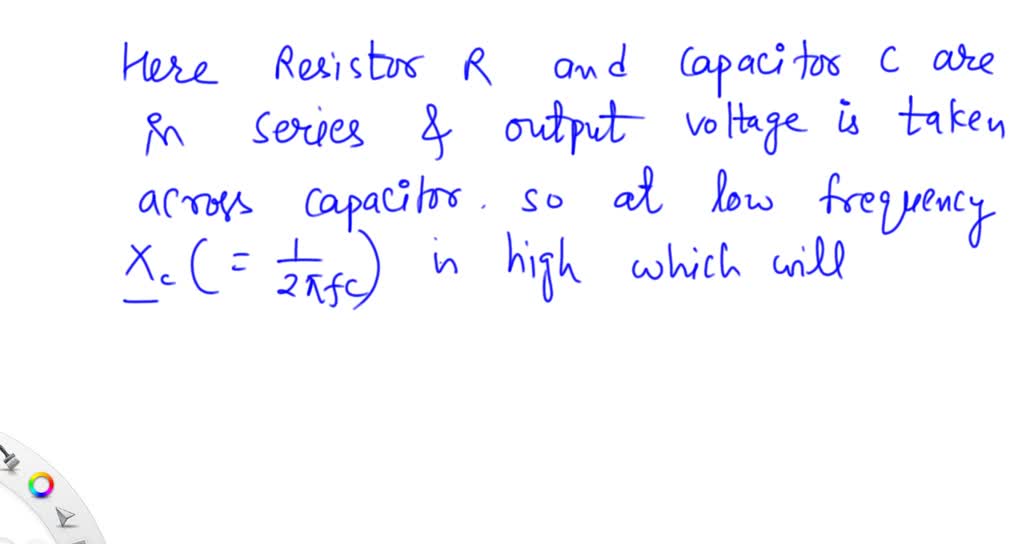 Here Resistor R and capacitor C are
in series & output voltage is taken
across capacitor. so at low frequency
Xc (= 1/2πfC) is high which will